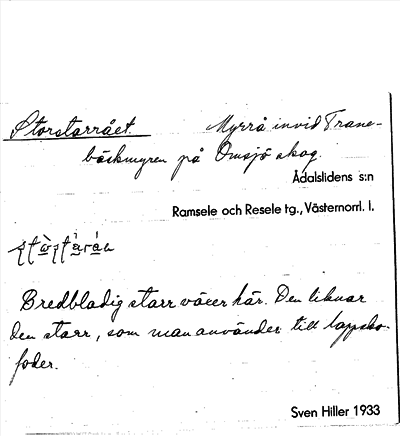 Storstarrået. Myrrå invid Trane-
bäckmyren på Omsjö skog.
Ådalslidens s:n
Ramsele och Resele tg., Västernorrl. l.
Bredbladig starr växer här. Den liknar
den starr, som man använder till lappsko-
foder.
Sven Hiller 1933